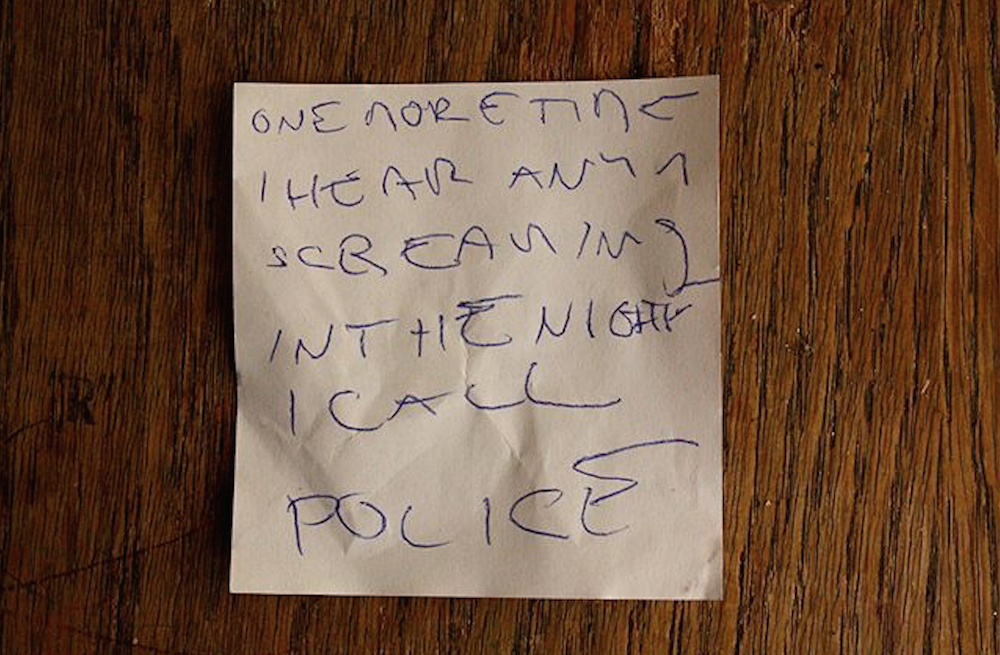 ONE MORE TIME
I HEAR ANY
SCREAMING
IN THE NIGHT
I CALL
POLICE